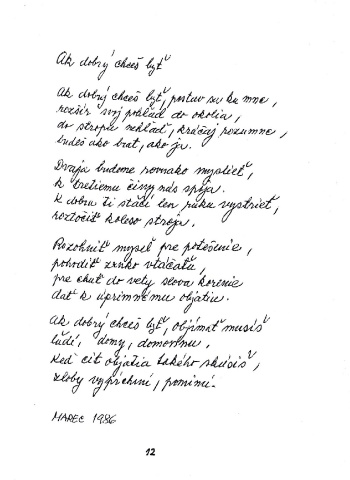 Ak dobrý chceš byť
Ak dobrý chceš byť, postav sa ku mne,
rozšír svoj pohľad do okolia,
do stropu nehľaď, kráčaj rozumne,
budeš ako brat, ako ja.
Dvaja budeme rovnako myslieť,
k tretiemu činy nás spája.
K dobru ti stačí len ruku vystrieť,
roztočiť koleso stroja.
Rozohniť myseľ pre potešenie,
pohodiť zrnko vtáčaťu,
pre chuť do vety slova korenie
dať k úprimnému objatiu.
Ak dobrý chceš byť, objímať musíš
ľudí, domy, domovinu.
Keď cit objatia takého skúsiš,
zloby vyprchnú, pominú.
MAREC 1986
12